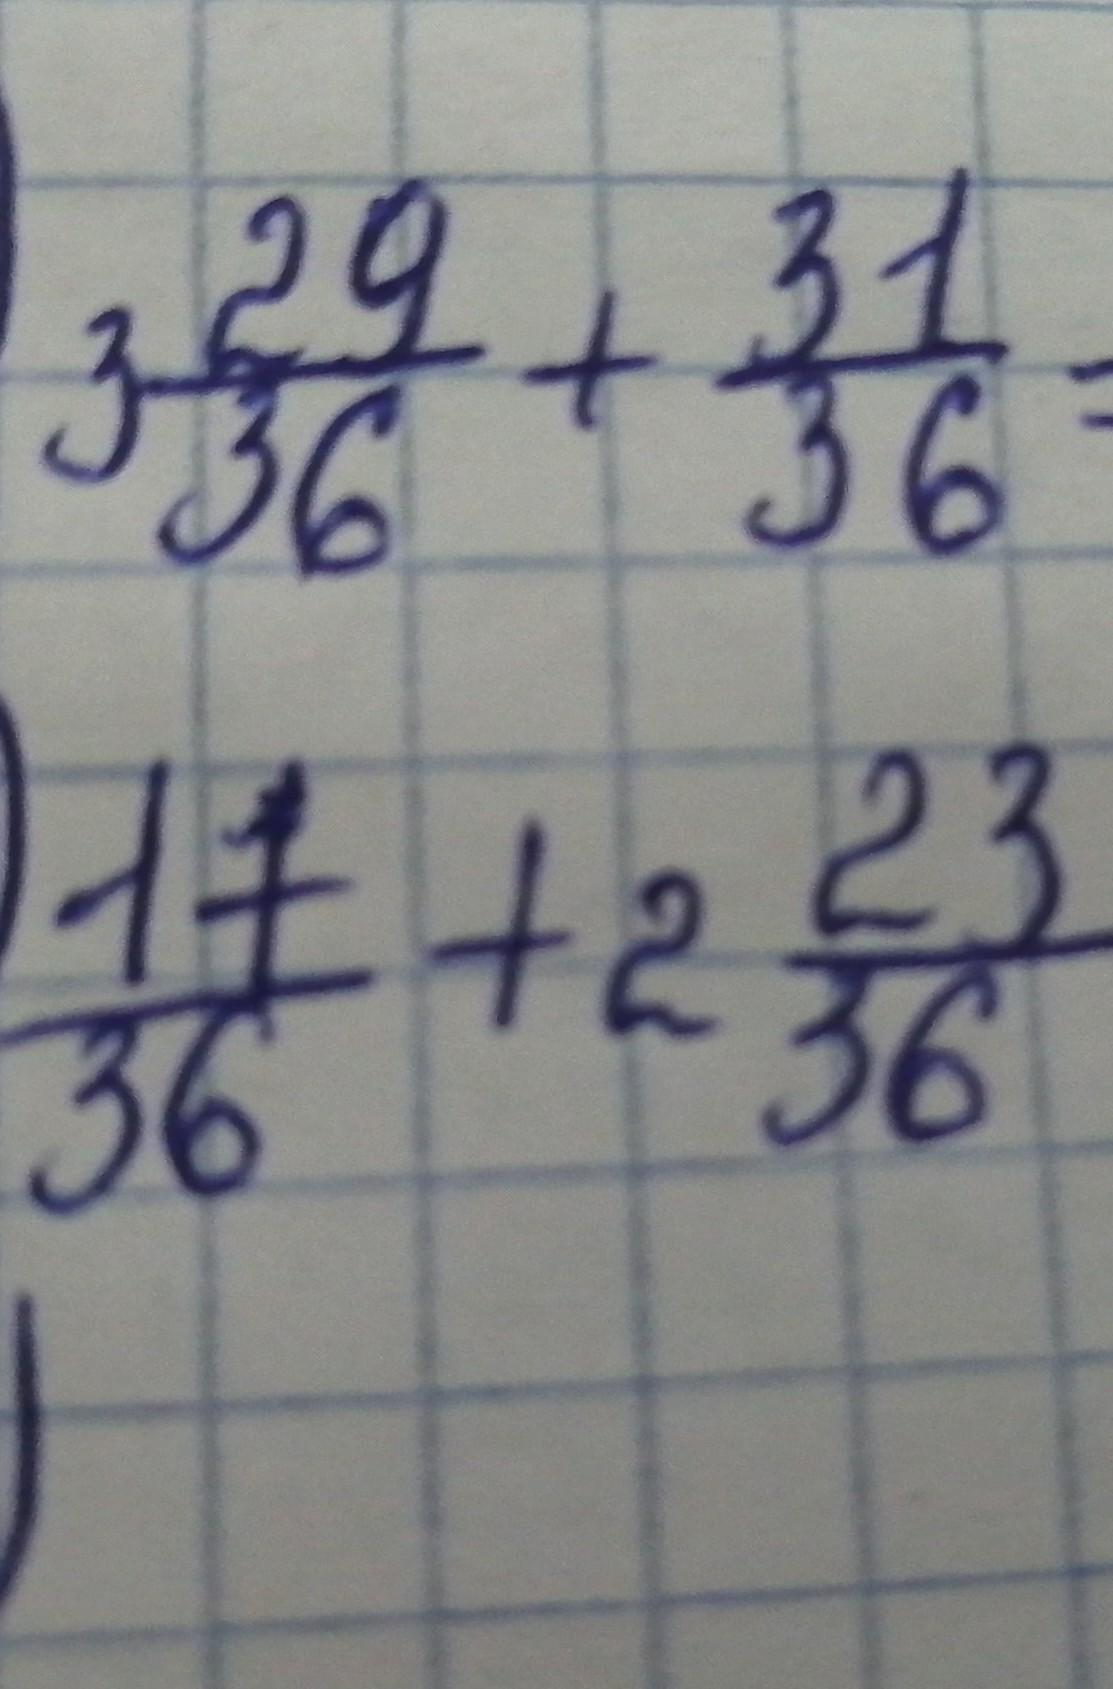 ) 3 29/36 + 31/36 =
) 17/36 + 2 23/36
)